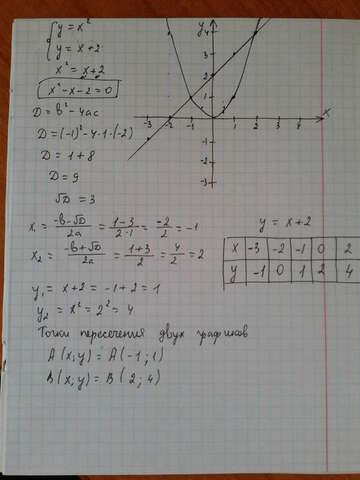 { y = x²
y = x + 2
x² = x + 2
x² - x - 2 = 0
D = b² - 4ac
D = (-1)² - 4·1·(-2)
D = 1 + 8
D = 9
√D = 3
x₁ = (-b - √D)/2a = (1 - 3)/(2·1) = -2/2 = -1
x₂ = (-b + √D)/2a = (1 + 3)/2 = 4/2 = 2
y₁ = x + 2 = -1 + 2 = 1
y₂ = x² = 2² = 4
Точки пересечения двух графиков
A (x; y) = A (-1; 1)
B (x; y) = B (2; 4)
y
4
3
2
1
0
-1
-2
-3
-3 -2 -1 1 2 3 4
x
y = x + 2
x -3 -2 -1 0 2
y -1 0 1 2 4